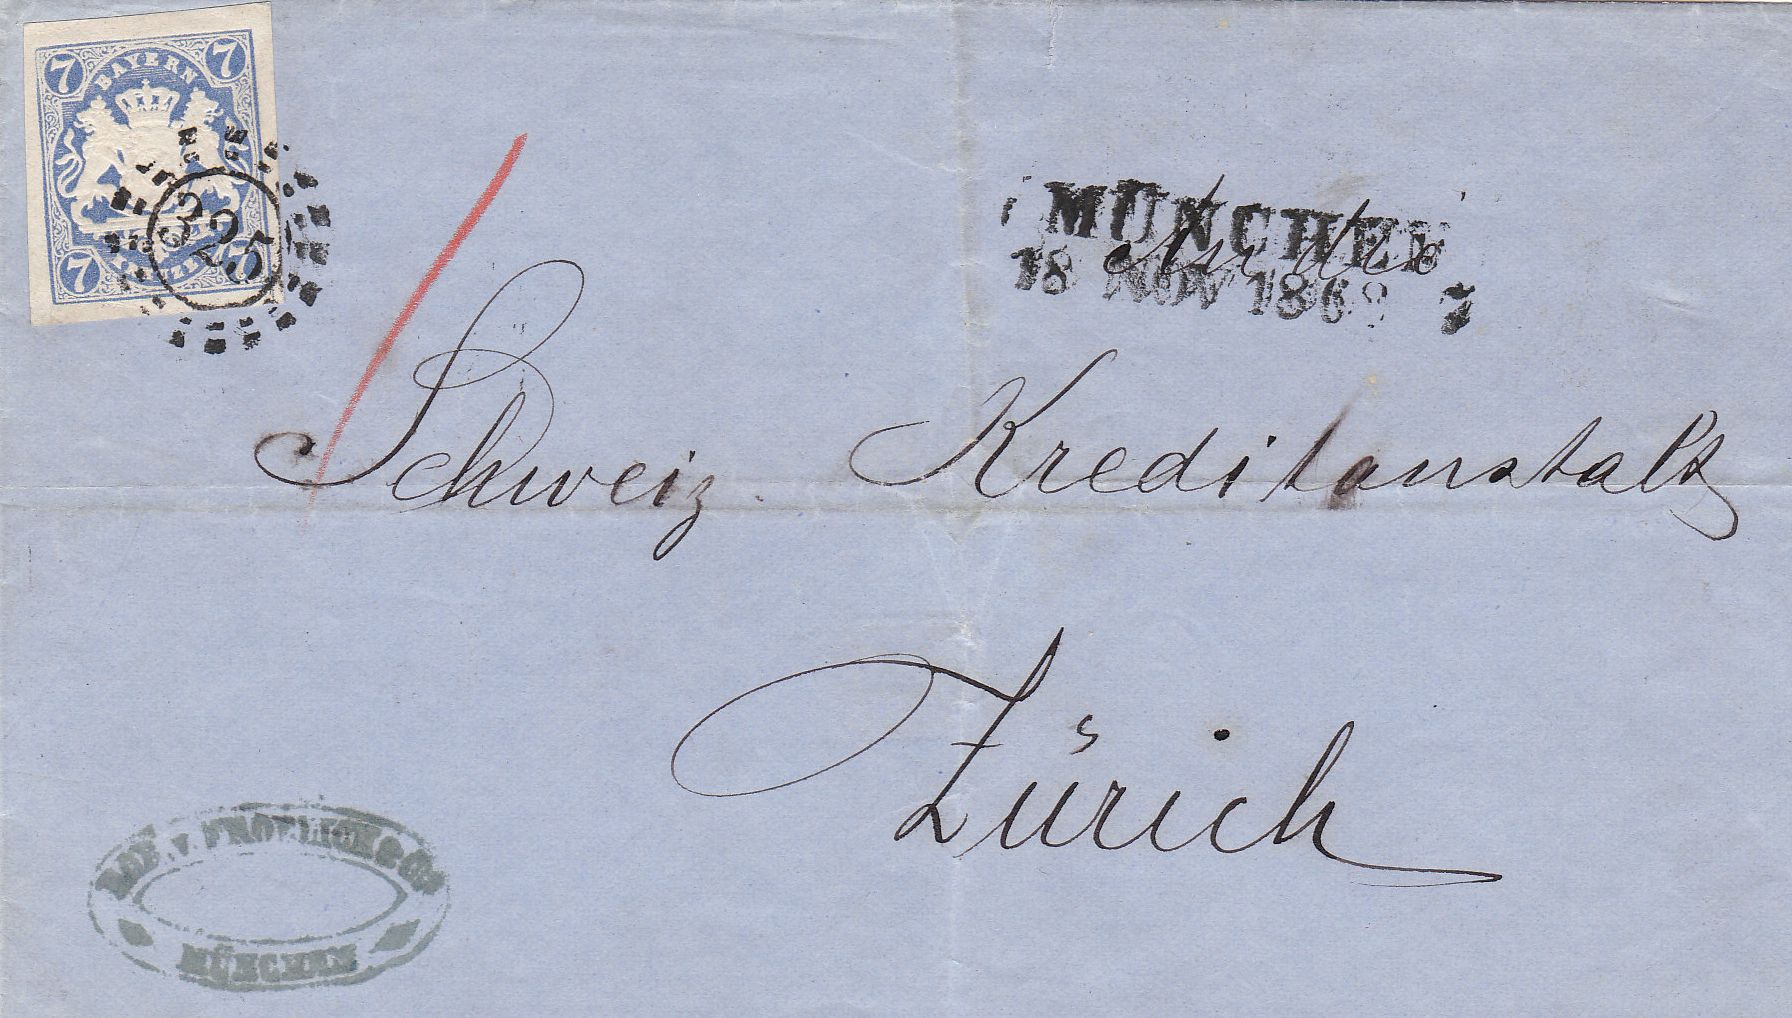 7 BAYERN 7
7 KREUZER 7
325
MÜNCHEN
18 NOV 1868 7
An die
Schweiz. Kreditanstalt
Zürich
ROB. v. FROELICH & Co.
MÜNCHEN